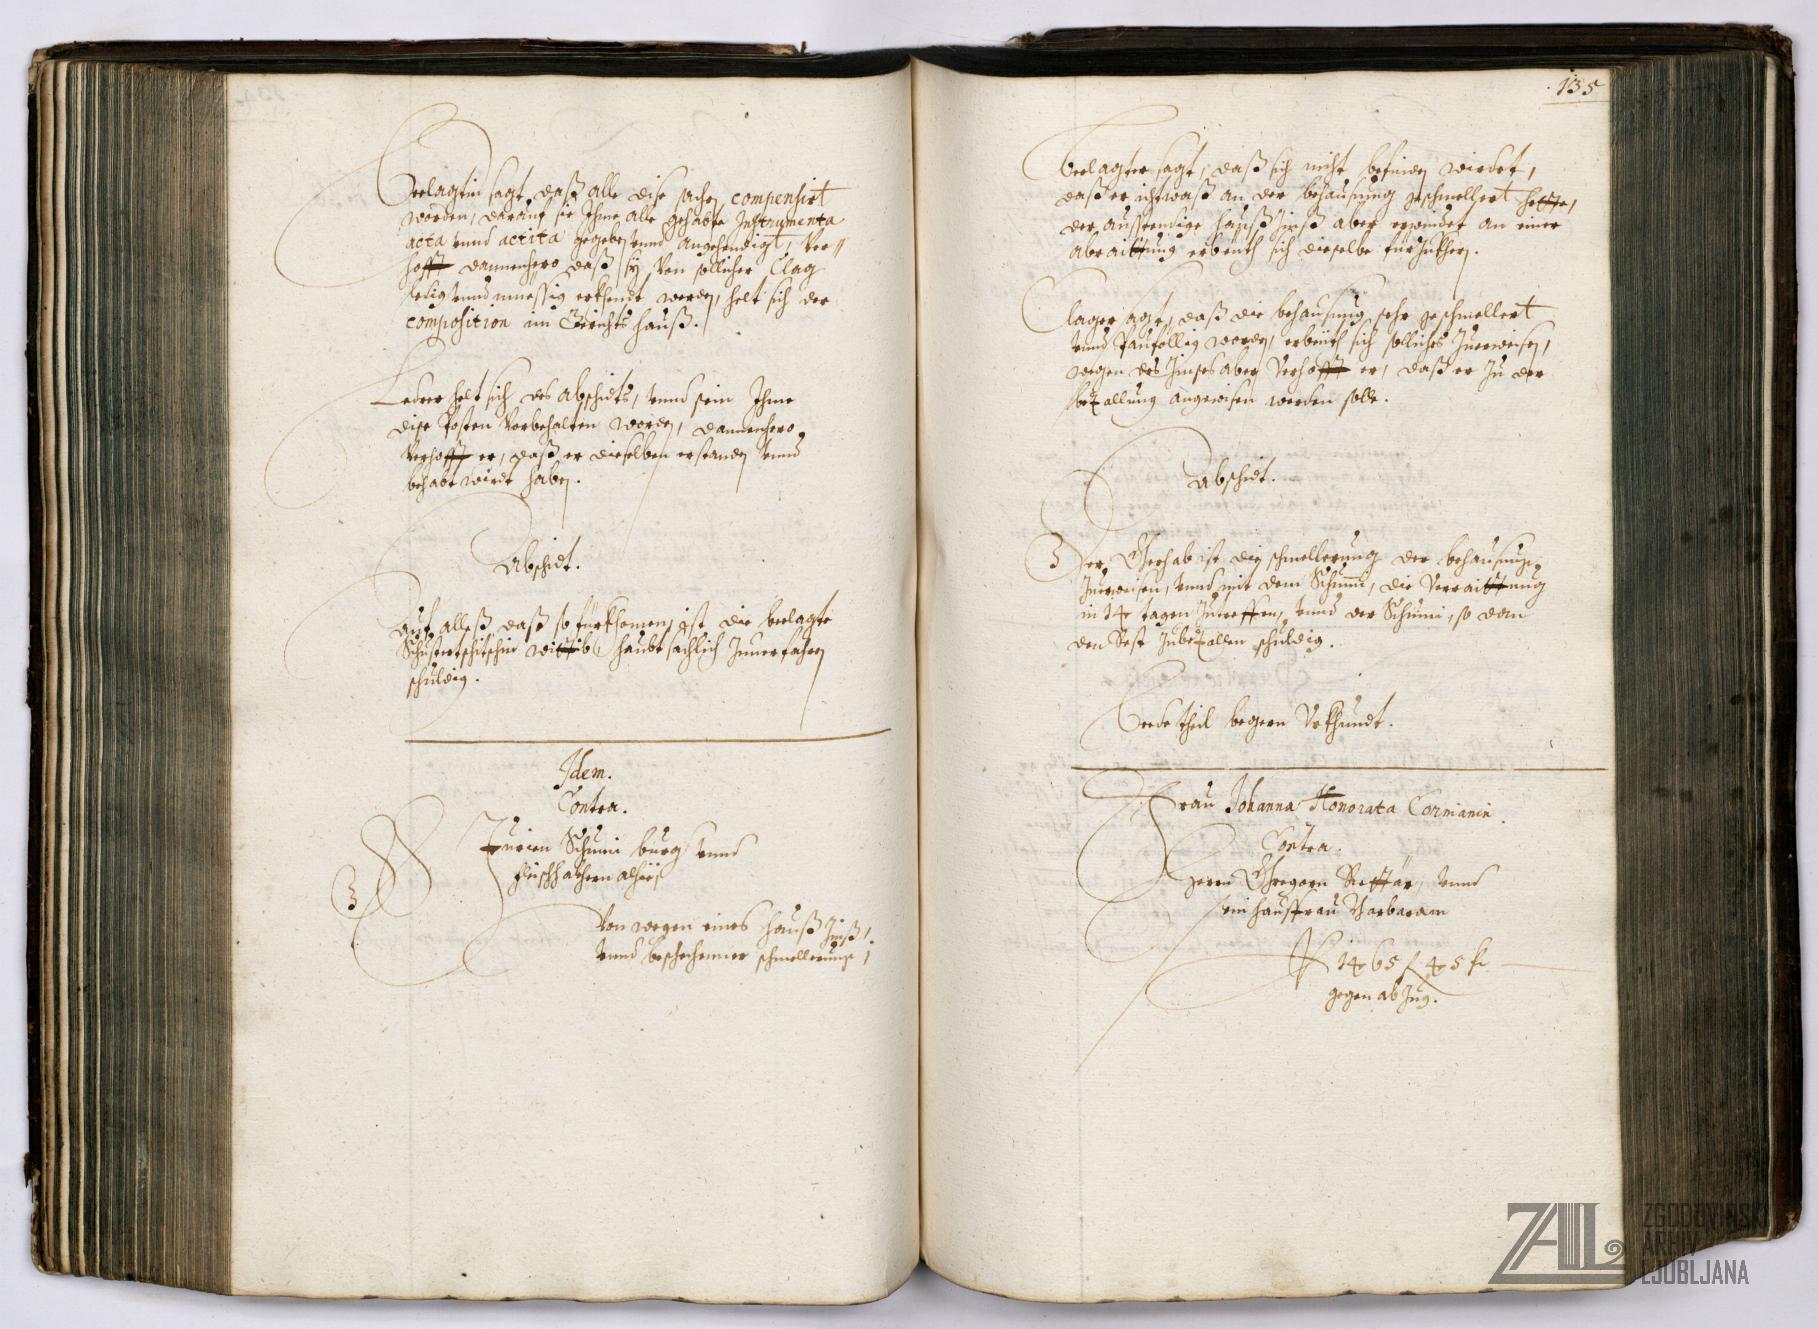 Beclagtin sagt, daß alle dise sachen compensirt
worden, darauf sie Ihme alle gehabte Instrumenta
acta vnnd actita gegeben vnnd angehendigt, Ver„
hofft dannenhero daß sÿ von sollicher Clag
ledig vnnd miessig erkhendt werden, helt sich der
composition im Gerichts hauß.
Lederer helt sich des abschidts, vnnd sein Ihme
dise Posten vorbehalten worden, dannenhero
verhofft er, daß er dieselben erstanden vnnd
behabt wirdt haben.
Abschidt.
Auf alles daß so fürkhomen ist die beclagte
wittib haubtsachlich Zuuerfahren
schuldig.
Idem.
Contra.
Jurien Schumi burg: vnnd
fleischhakhern alhie,
Von wegen eines hauß Zinß,
vnnd beschechener schmellerung,
135
Beclagter sagt, daß sich nicht befinden wirdet,
daß er ichtwaß an der behausung geschmellert hette,
der ausstendige hauß Zinß aber erwindet an einer
abraittung erbeüth sich dieselbe fürzukhern.
Clager sagt, daß die behausung sehr geschmellert
vnnd Paufellig worden, erbeüth sich solliches Zuerweisen,
wegen des Zinses aber verhofft er, daß er zu der
bezallung angewisen werden solle.
Abschidt.
Der Gerhab ist die schmellerung der behausung
Zuerweisen, vnnd mit dem Schumi, die verraittung
in 14 tagen Zutreffen, vnnd der Schumi, so dan
den Rest Zubezallen schuldig.
Beede theil begern Vrkhundt.
Frau Johanna Honorata Cormanin
Contra.
Herrn Gregorn vnnd
sein hausfrau Barbaram
Pr 1465 f 45 kr
gegen abzug.
ZAL
ZGODOVINSKI
ARHIV
LJUBLJANA